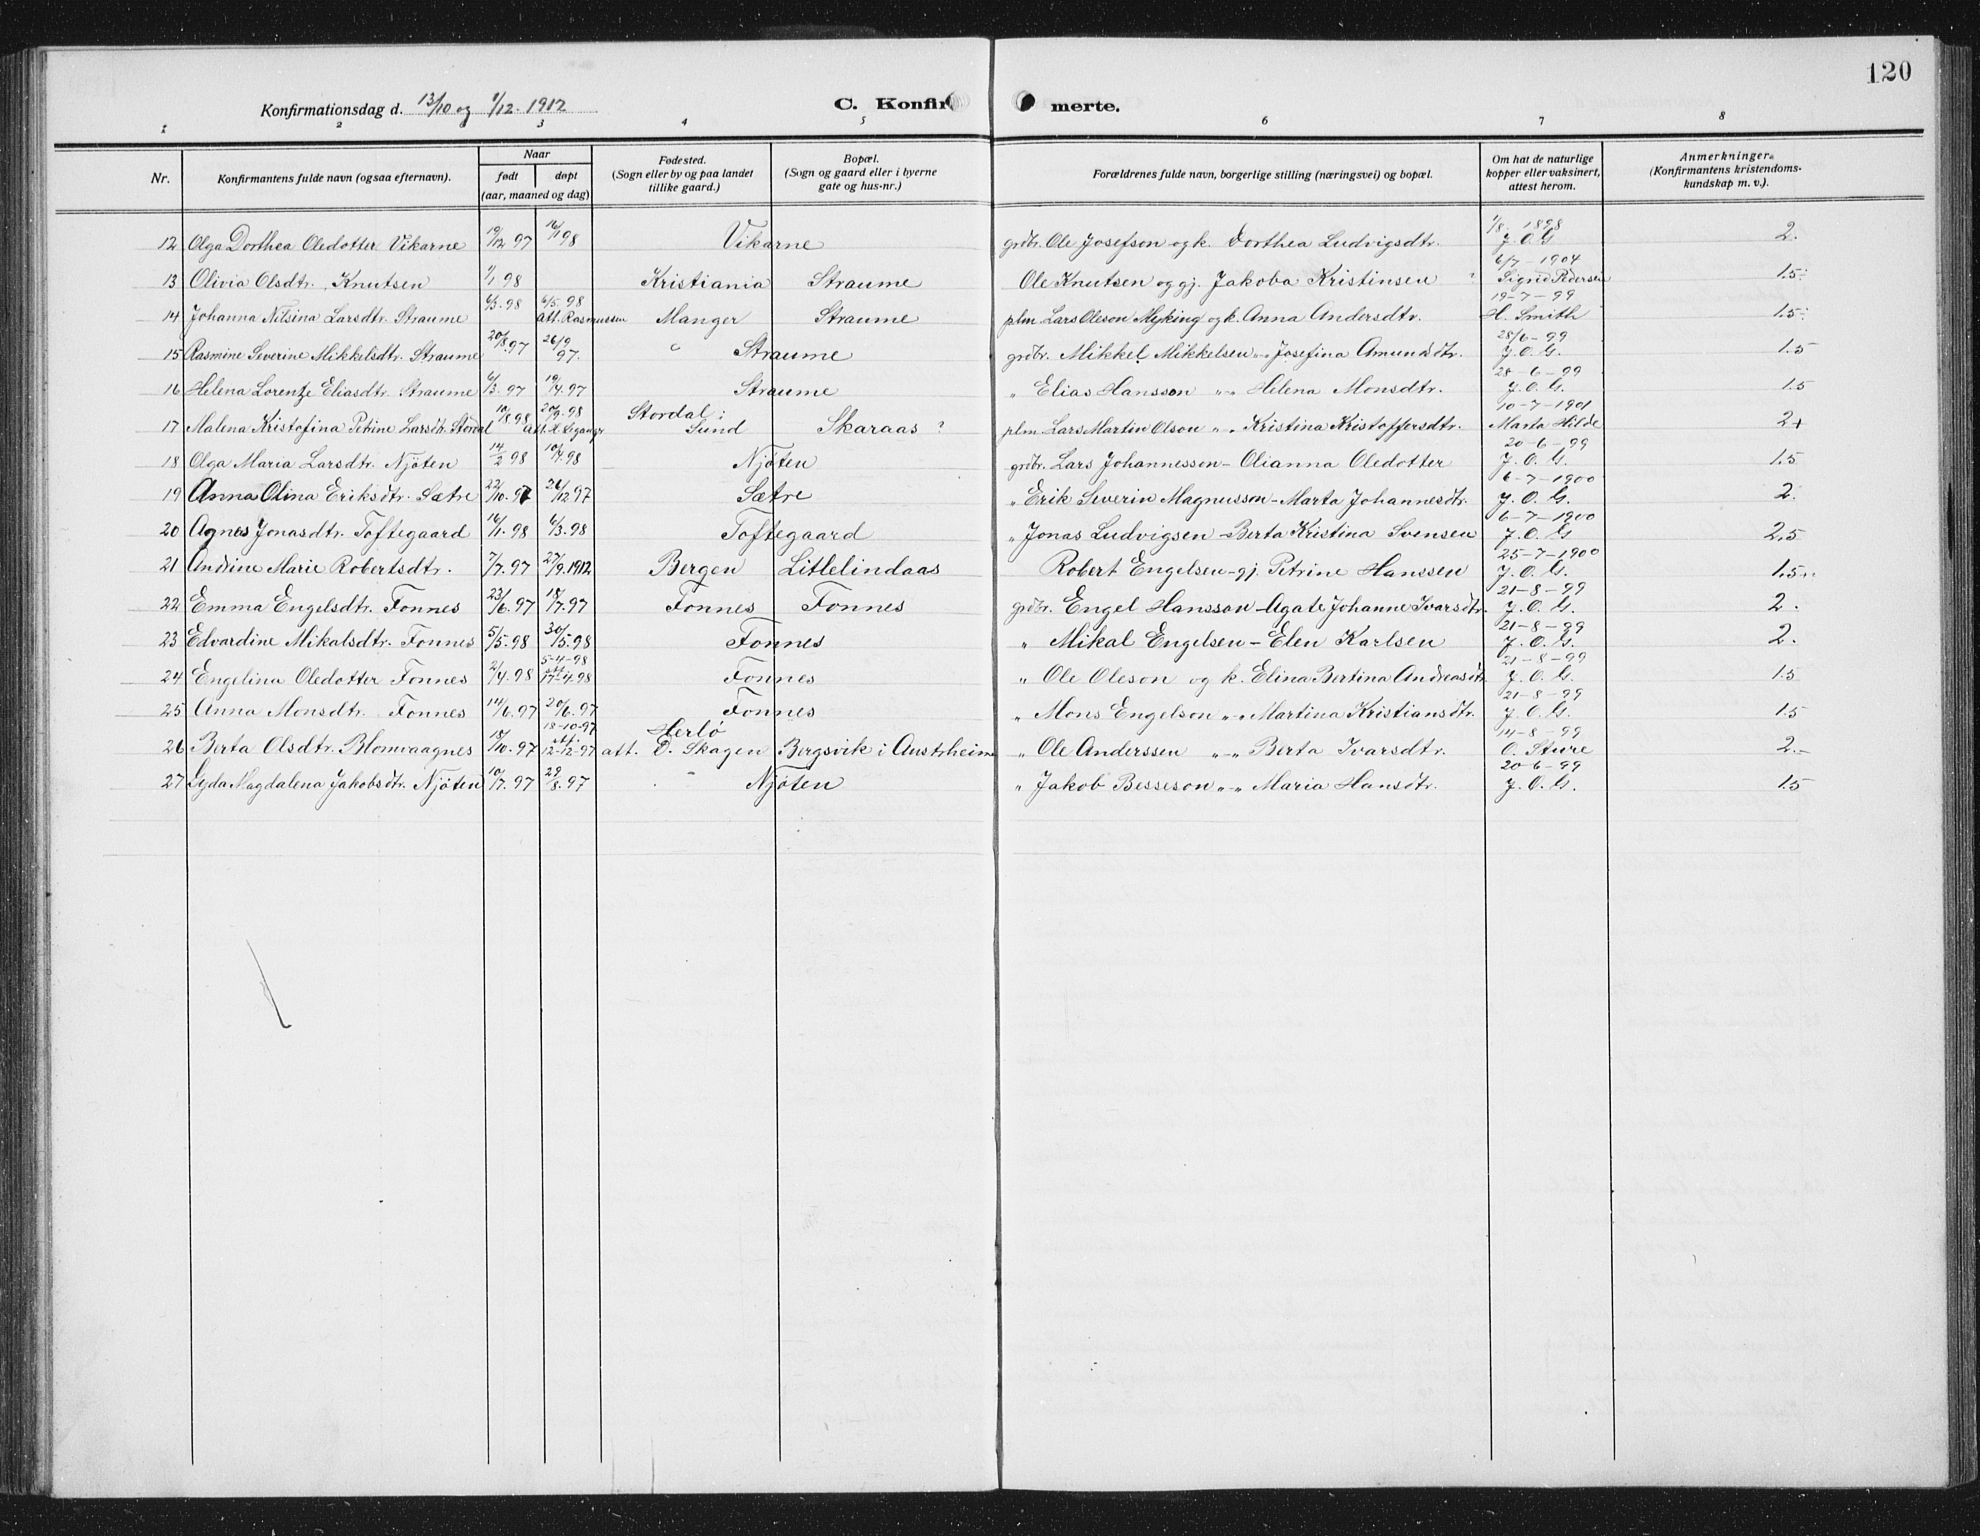 120
Konfirmationsdag d. 13/10 og 1/12 1912 C. Konfir merte.
1 2 3 4 5 6 7 8
Nr. Konfirmantens fulde navn (ogsaa efternavn). Naar født døpt (aar, maaned og dag) Fødested. (Sogn eller by og paa landet tillike gaard.) Bopæl. (Sogn og gaard eller i byerne gate og hus-nr.) Forældrenes fulde navn, borgerlige stilling (næringsvei) og bopæl. Om hat de naturlige kopper eller vaksinert, attest herom. Anmerkninger. (Konfirmantens kristendoms-kundskap m. v.).
12 Olga Dorthea Oledotter Vikarne 19/12 97 16/1 98 Vikarne grdbr. Ole Josefson og k. Dorthea Ludvigsdtr. 1/8 - 1898 J. O. G. 2.
13 Olivia Olsdtr. Knutsen 1/1 98 Kristiania Straume Ole Knutsen og gj. Jakoba Kristinsen ? 6/7 - 1904 Sigrid Pedersen 1.5
14 Johanna Nilsina Larsdtr. Straume 6/3. 98 6/5. 98 att. Rasmussen Manger Straume plm. Lars Oleson Myking og k. Anna Andersdtr. 19-7-99 H. Smith 1.5
15 Rasmine Severine Mikkelsdtr. Straume 20/8. 97 26/9 97. " Straume grdbr. Mikkel Mikkelsen -"- Josefina Amundsdtr. 28/6-99 J. O. G. 1.5
16 Helena Lorentze Eliasdtr. Straume 6/3. 97 19/4. 97 Straume " Elias Hansson "-" Helena Monsdtr. 28-6-99 J. O. G. 1.5
17 Malena Kristofina Petrine Larsdtr. Stordal 10/8. 98 20/9. 98 Stordal i Sund Skaraas ? plm. Lars Martin Olson "-" Kristina Kristoffersdtr. 10-7-1901 Marta Hilde 2+
18 Olga Maria Larsdtr. Njøten 14/2 98 10/4. 98 Njøten grdbr. Lars Johannesson - Olianna Oledotter 20-6-99 J. O. G. 1.5
19 Anna Olina Eriksdtr. Sætre 22/10. 97 26/12 97 Sætre " Erik Severin Magnusson - Marta Johannesdtr. 6-7-1900 J. O. G. 2.
20 Agnes Jonasdtr. Toftegaard 16/1. 98 6/3. 98 Toftegaard " Jonas Ludvigsen - Berta Kristina Svensen 6-7-1900 J. O. G. 2.5
21 Andrine Marie Robertsdtr. 7/7. 97 27/9. 1912 Bergen Litlelindaas Robert Engelsen - gj. Petrine Hanssen 25-7-1900 J. O. G. 1.5
22 Emma Engelsdtr. Fonnes 23/6. 97 18/7. 97 Fonnes Fonnes grdbr. Engel Hansson - Agate Johanne Ivarsdtr. 21-8-99 J. O. G. 2.
23 Edvardine Mikalsdtr. Fonnes 5/5. 98 30/5. 98 Fonnes " Mikal Engelsen - Elen Karlsen 21-8-99 J. O. G. 2.
24 Engelina Oledotter Fonnes 2/4. 98 5-4-98 att. 17-4-98 Fonnes " Ole Oleson og k. Elina Bertina Andreasdtr 21-8-99 J. O. G. 1.5
25 Anna Monsdtr. Fonnes 14/6. 97 20/6. 97 Fonnes " Mons Engelson "-" Martina Kristiansdtr. 21-8-99 J. O. G. 1.5
26 Berta Olsdtr. Blomvaagnes 15/10. 97 18-10-97 att. 12-12-97 Herlø att. O. Skagen Bergsvik i Austrheim " Ole Anderssen "-" Berta Ivarsdtr. 14-8-99 O. Sture 2.-
27 Gyda Magdalena Jakobsdtr. Njøten 10/7. 97 29/8. 97 Njøten " Jakob Besseson "-" Maria Hansdtr. 20-6-99 J. O. G. 1.5